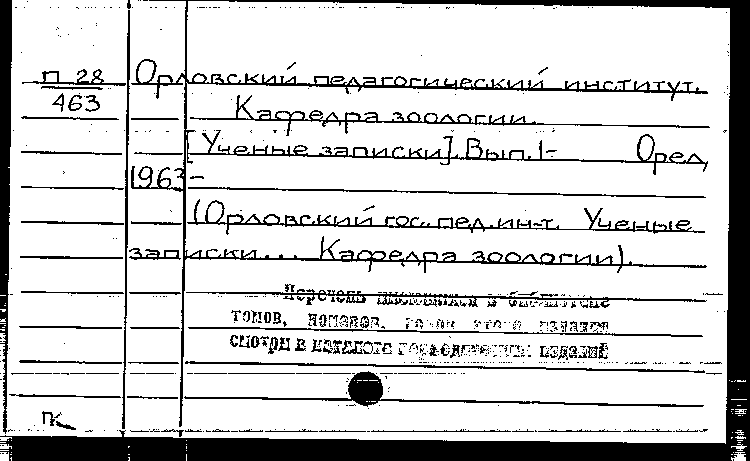 П 28 Орловский педагогический институт.
463 Кафедра зоологии.
[Ученые записки]. Вып. 1- Орел,
1963-
(Орловский гос. пед. ин-т. Ученые
записки... Кафедра зоологии).
Перечень имеющихся в библиотеке
томов, номеров, годов этого издания
смотри в каталоге периодических изданий
ПК